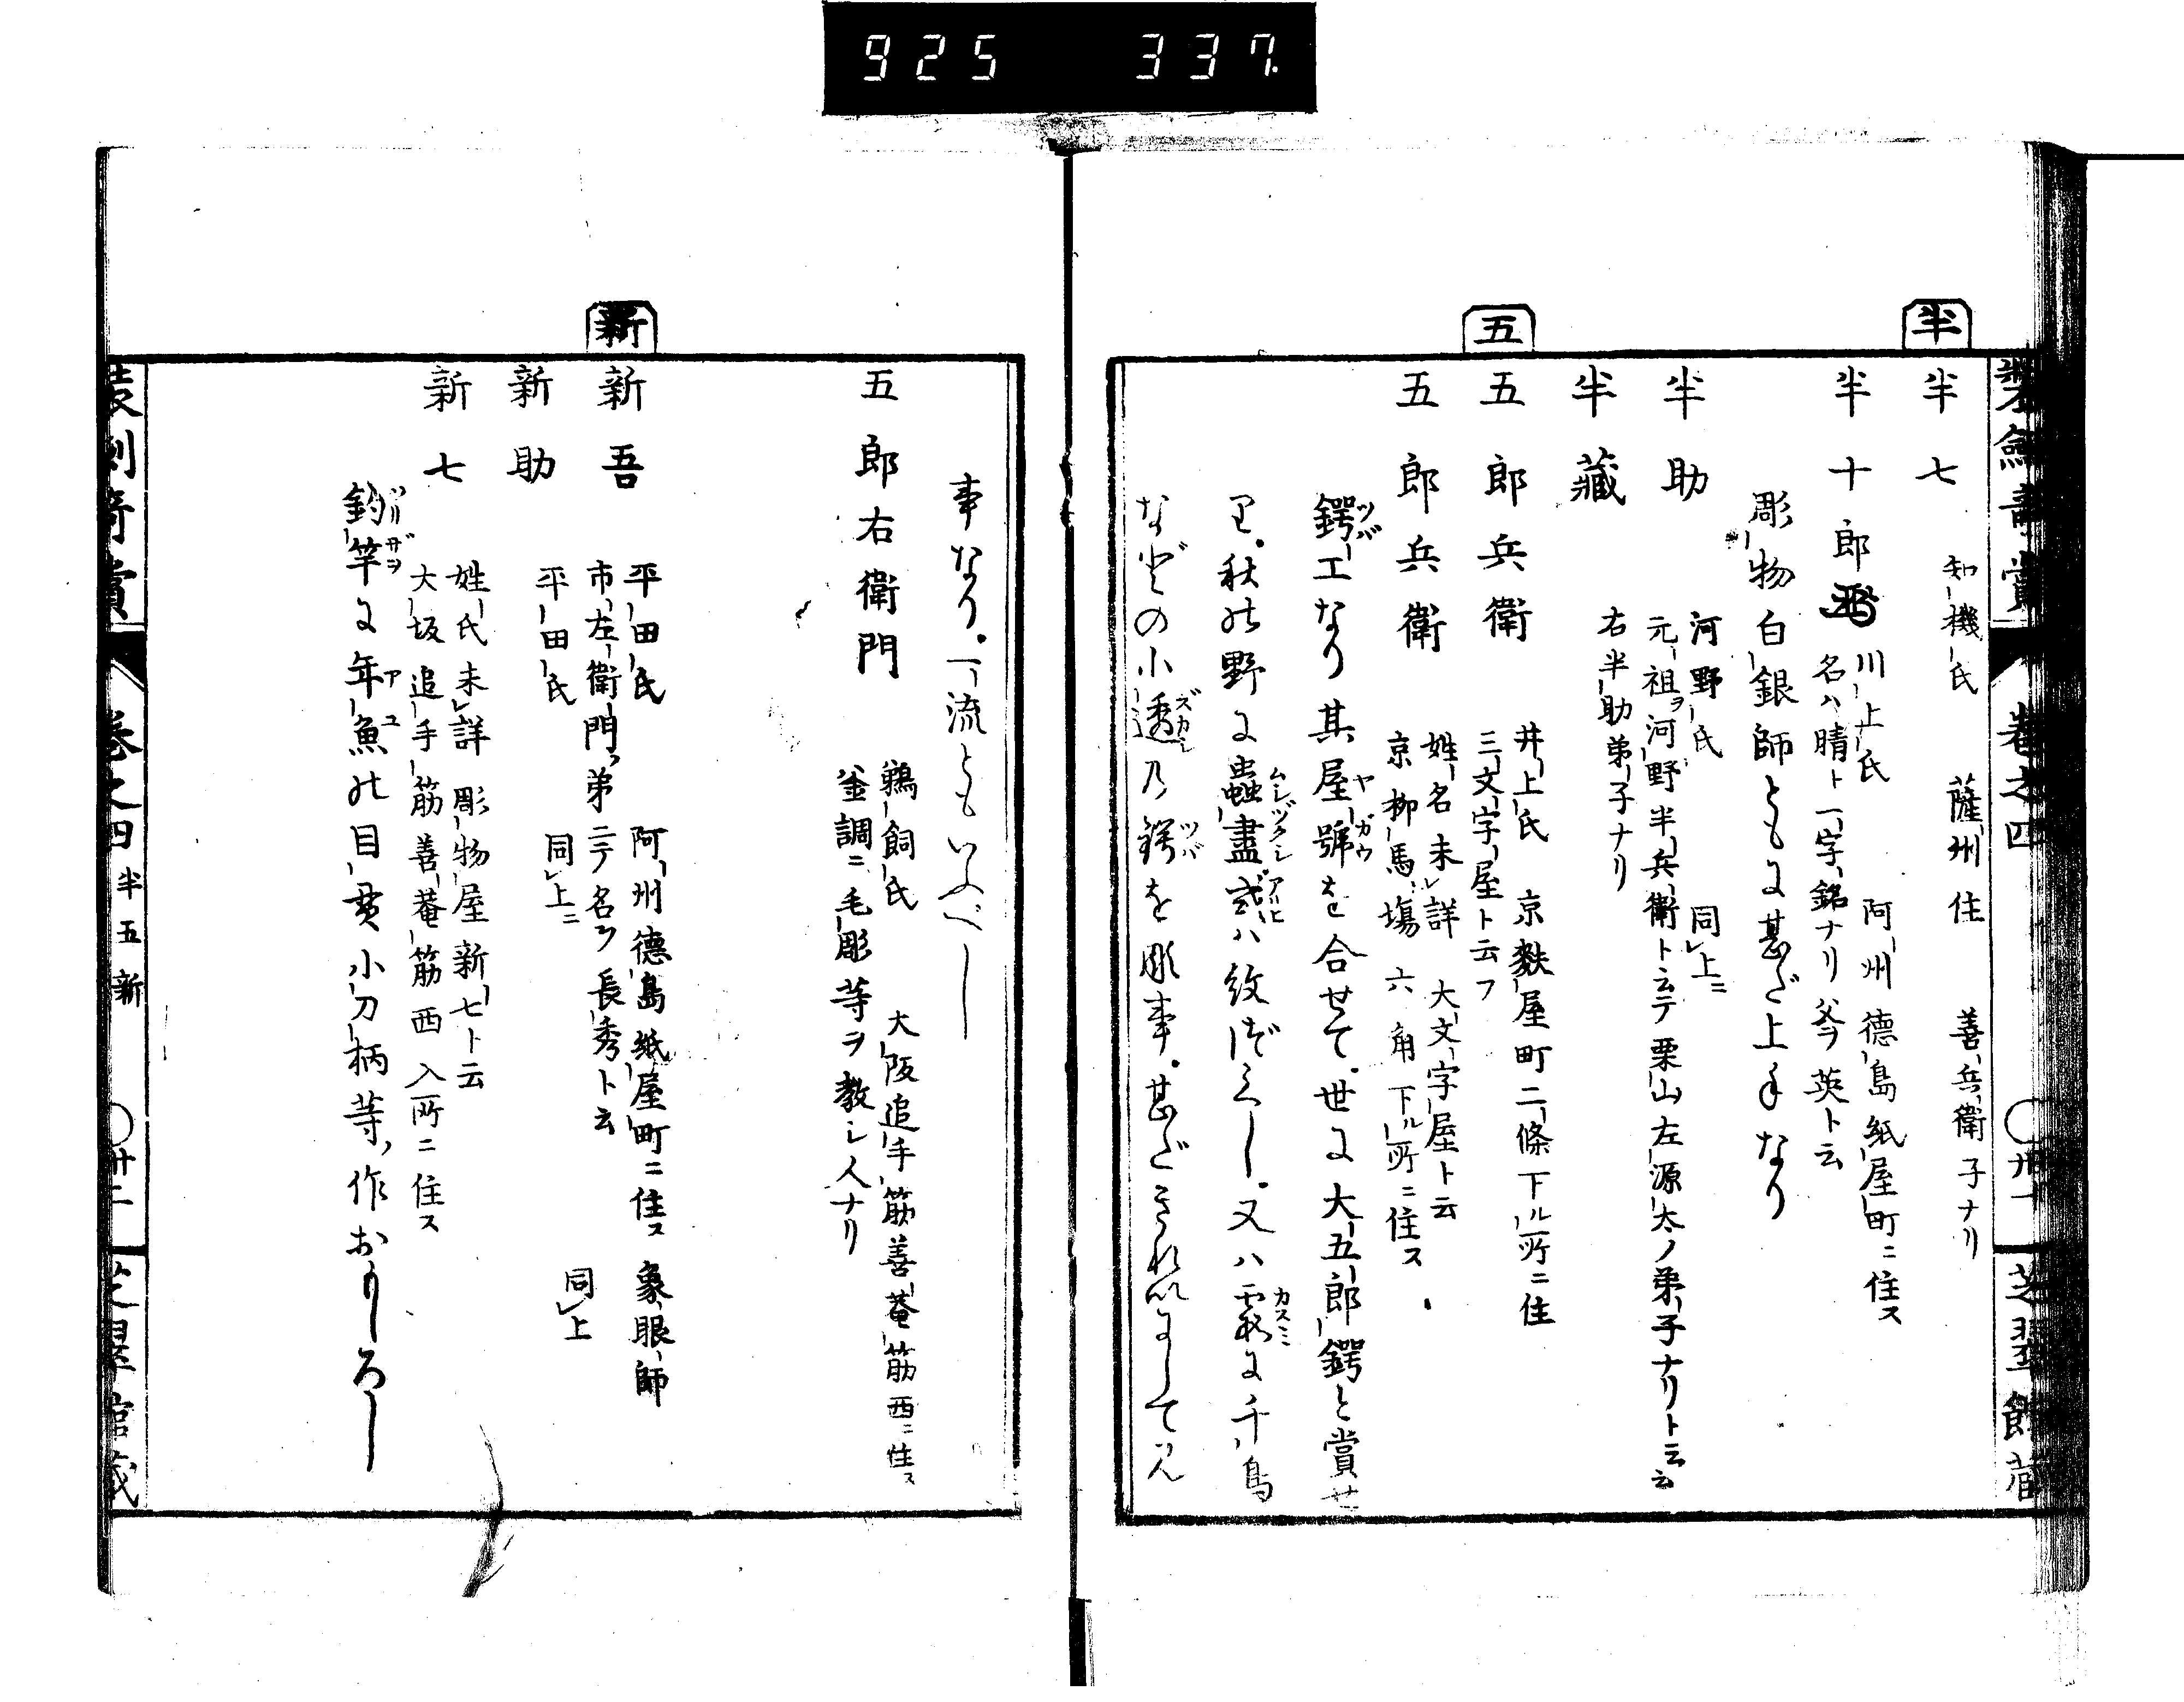 925 337.
半
半七 知機氏 薩州住 善兵衛子ナリ
半十郎 川上氏 阿州徳島紙屋町ニ住ス
名ハ晴ト一字銘ナリ 英ト云
彫物白銀師ともに甚ざ上手なり
半助 河野氏 同上ニ
元祖ヲ河野半兵衛ト云テ栗山左源太ノ弟子ナリト云云
半藏 右半助弟子ナリ
五
五郎兵衛 井上氏 京麩屋町二條下ル所ニ住
三文字屋ト云フ
五郎兵衛 姓名未詳 大文字屋ト云
京柳馬場六角下ル所ニ住ス
鍔工なり其屋號を合せて。世に大五郎鍔と賞せ
ツバ ヤガウ
で。秋の野に蟲盡或ハ紋づくし。又ハ霞に千鳥
ムシヅクシ アルヒ カスミ
などの小透乃鍔を彫事。甚だきれいにして又
ズカシ ツバ
卷之四
卅一
芝翠館藏
事なり。一流ともいふべし
五郎右衛門 鵜飼氏 大阪追手筋善菴筋西ニ住ス
釜調ニ毛彫等ヲ教シ人ナリ
新
新吾 平田氏 阿州徳島紙屋町ニ住ス 象眼師
市左衛門弟ニテ名ヲ長秀ト云
新助 平田氏 同上ニ 同上
新七 姓氏未詳 彫物屋新七ト云
大坂追手筋善菴筋西入所ニ住ス
釣竿に年魚の目貫小刀柄等作おもしろし
ツリザヲ アユ
裝劍竒賞
卷之四 半五新
卅二
芝翠館藏